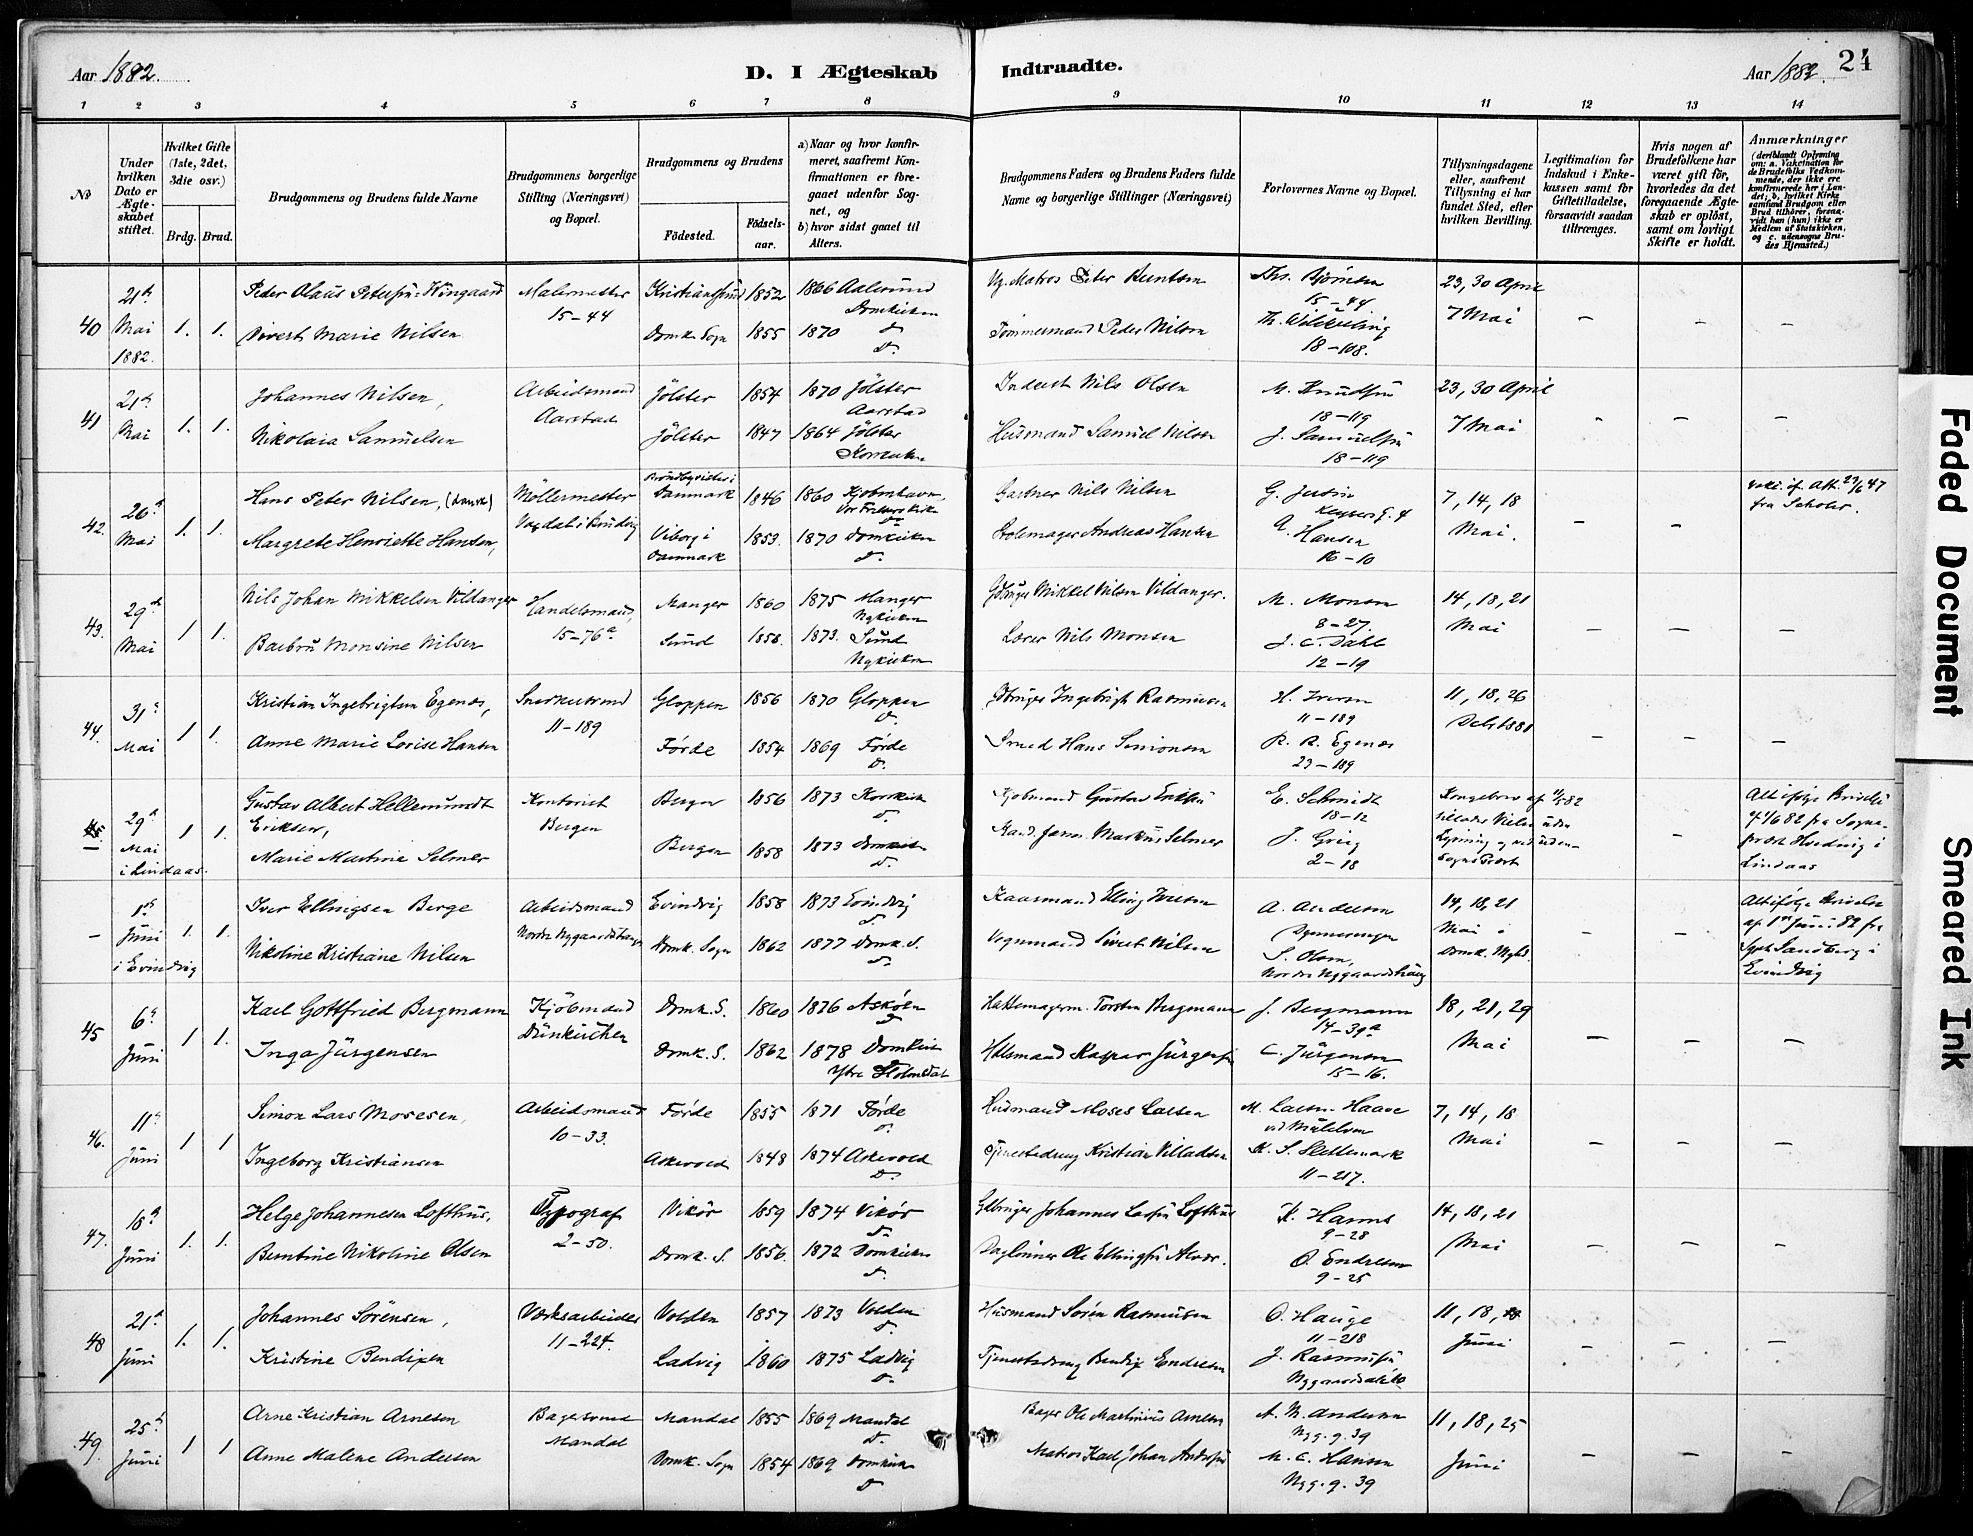 Aar 1882.
D. I Ægteskab
Indtraadte.
Aar 1882.
24
1 2 3 4 5 6 7 8 9 10 11 12 13 14
No
Under hvilken Dato er Ægteskabet stiftet.
Hvilket Gifte (1ste, 2det, 3die osv.)
Brdg. Brud.
Brudgommens og Brudens fulde Navne
Brudgommens borgerlige Stilling (Næringsvei) og Bopæl.
Brudgommens og Brudens
Fødested.
Fødselsaar.
a) Naar og hvor konfirmeret, saafremt Konfirmationen er foregaaet udenfor Sognet, og
b) hvor sidst gaaet til Alters.
Brudgommens Faders og Brudens Faders fulde Navne og borgerlige Stillinger (Næringsvei)
Forlovernes Navne og Bopæl.
Tillysningsdagene eller, saafremt Tillysning ei har fundet Sted, efter hvilken Bevilling.
Legitimation for Indskud i Enkekassen samt for Giftetilladelse, forsaavidt saadan tiltrænges.
Hvis nogen af Brudefolkene har været gift før, hvorledes da det foregaaende Ægteskab er opløst, samt om lovligt Skifte er holdt.
Anmærkninger
(deriblandt Oplysning om: a. Vaksination for de Brudefolks Vedkommende, der ikke ere konfirmerede her i Landet; b. hvilket Kirkesamfund Brudgom eller Brud tilhører, forsaavidt han (hun) ikke er Medlem af Statskirken, og c. udensogns Brudes Hjemsted.)
40 21d Mai 1882. 1. 1.
Peder Olaus Petersen Wingaard Malermester 15-44 Kristianssund 1852 1866 Aalesund Domkirken Peter Knutsen Bjørnsen 15-44 23, 30 April
Sivert Marie Nilsen Domk. Sogn 1855 1870 do Tømmermand Peder Nilsen 18-108. 7 Mai
41 21d Mai 1. 1.
Johannes Nilsen, Arbeidsmand Aarstad Jölster 1854 1870 Jölster Aarstad Inderst Nils Olsen M. Knudsen 18-119 23, 30 April
Nikolaia Samuelsen Jölster 1847 1864 Jölster Korskirken Husmand Samuel Nilsen J. Samuelsen 18-119 7 Mai
42. 26d Mai 1. 1.
Hans Peter Nilsen, (Dansk) Möllermester Danmark 1846 1860 Kjøbenhavn, Vor Frelsers Kirke Gartner Nils Nilsen G. 7, 14, 18 fra Scholer.
Margrete Henriette Hansen, Viborg i Danmark 1853. 1870 Domkirken do Stolemager Andreas Hansen A. Hansen 16-10 Mai.
43. 29de Mai 1 1.
Nils Johan Mikkelsen Vildanger Handelsmand, 15-76a Manger 1860 1875 Manger Nykirken Gdbruger Mikkel Nilsen Vildanger. M. Monsen 8-27. 14, 18, 21
Barbru Monsine Nilsen Sund 1858. 1873. Sund Nykirken Lærer Nils Monsen J. C. Dahl 12-19 Mai
44. 31e Mai 1 1.
Kristian Ingebrigtsen Egenæs, Snekkersvend 11-189 Gloppen 1856 1870 Gloppen do Gdbruger Ingebrigt Rasmussen H. Iversen 11-189 11, 18, 26
Anne Marie Lovise Hansen Førde 1854 1869 Førde do Smed Hans Simonsen R. R. Egenæs 23-189 Debr 1881
45. 29d Mai i Lindaas. 1 1.
Gustav Albert Hellemundt Eriksen, Kontorist Bergen Bergen 1856 1873 Korskirk do Kjøbmand Gustav Eriksen E. Schmidt 18-12 Kongebrev af 11/5 82
Marie Martine Selmer Bergen 1858 1873 Domkirk do Markus Selmer J. Grieg 2-18
Alt ifølge Brevets fra Sogneprest i Lindaas
- 1ste Juni i Evindvig 1. 1.
Iver Ellingsen Berge Arbeidsmand Evindvig 1858 1873 Evindvig do Kaarmand Elling Iversen A. Andersen 14, 18, 21
Nikoline Kristiane Nilsen 1862 1877 Domk. S. do Vognmand Sivert Nilsen S. Olsen, Nordre Nygaardshaug Mai i Domk. Mgh.
Alt ifølge Skrivelse af 1ste Juni 82 fra Sgpr Sandberg i Evindvig
45 6e Juni 1 1.
Karl Gottfried Bergmann Kjöbmand Dünkirchen Domk. S. 1860 1876 Askøen do Hattemagerm. Torsten Bergmann J. Bergmann 14-39a 18, 21, 29
Inga Jürgensen Domk. S. 1862 1878 Domkirk Ytre Holmedal Husmand Kaspar Jürgensen C. Jürgensen 15-16. Mai
46. 11e Juni 1 1
Simon Lars Mosesen, Arbeidsmand 10-33. Førde 1855 1871 Førde do Husmand Moses Larsen M. Larsen Haave 7, 14, 18
Ingeborg Kristiansen Askevold 1848 1874 Askevold do Tjenestedreng Kristian Villadsen K. S. Slettemark 11-217. Mai
47. 18d Juni 1. 1.
Helge Johannesen Lofthus, Typograf 2-50. Vikör 1859 1874 Vikör do Gdbruger Johannes Larsen Lofthus K. Harms 9-28 14, 18, 21
Berntine Nikoline Olsen Domk. S. 1856. 1872 Domkirken do Daglønner Ole Ellingsen Alvær. O. Endresen 9-25 Mai
48 21d Juni 1. 1.
Johannes Sörensen, Værksarbeider 11-224. Volden 1857 1873 Volden do Husmand Sørén Rasmussen O. Hauge 11-218 11, 18, 18
Kristine Bendixen Ladvig 1860 1875 Ladvig do Tjenestedreng Bendix Endresen J. Rasmussen Juni
49. 25d Juni 1 1
Arne Kristian Arnesen Bagersvend Mandal Mandal 1855 1869 Mandal do Bager Ole Martinius Arnesen A. M. Andersen Nyg. g. 39 11, 18, 25
Anne Malene Andersen Domk. Sogn 1854 1869 Domkirk do Matros Karl Johan Andersen M. C. Hansen Nyg. g. 39 Juni
Faded Document
Smeared Ink